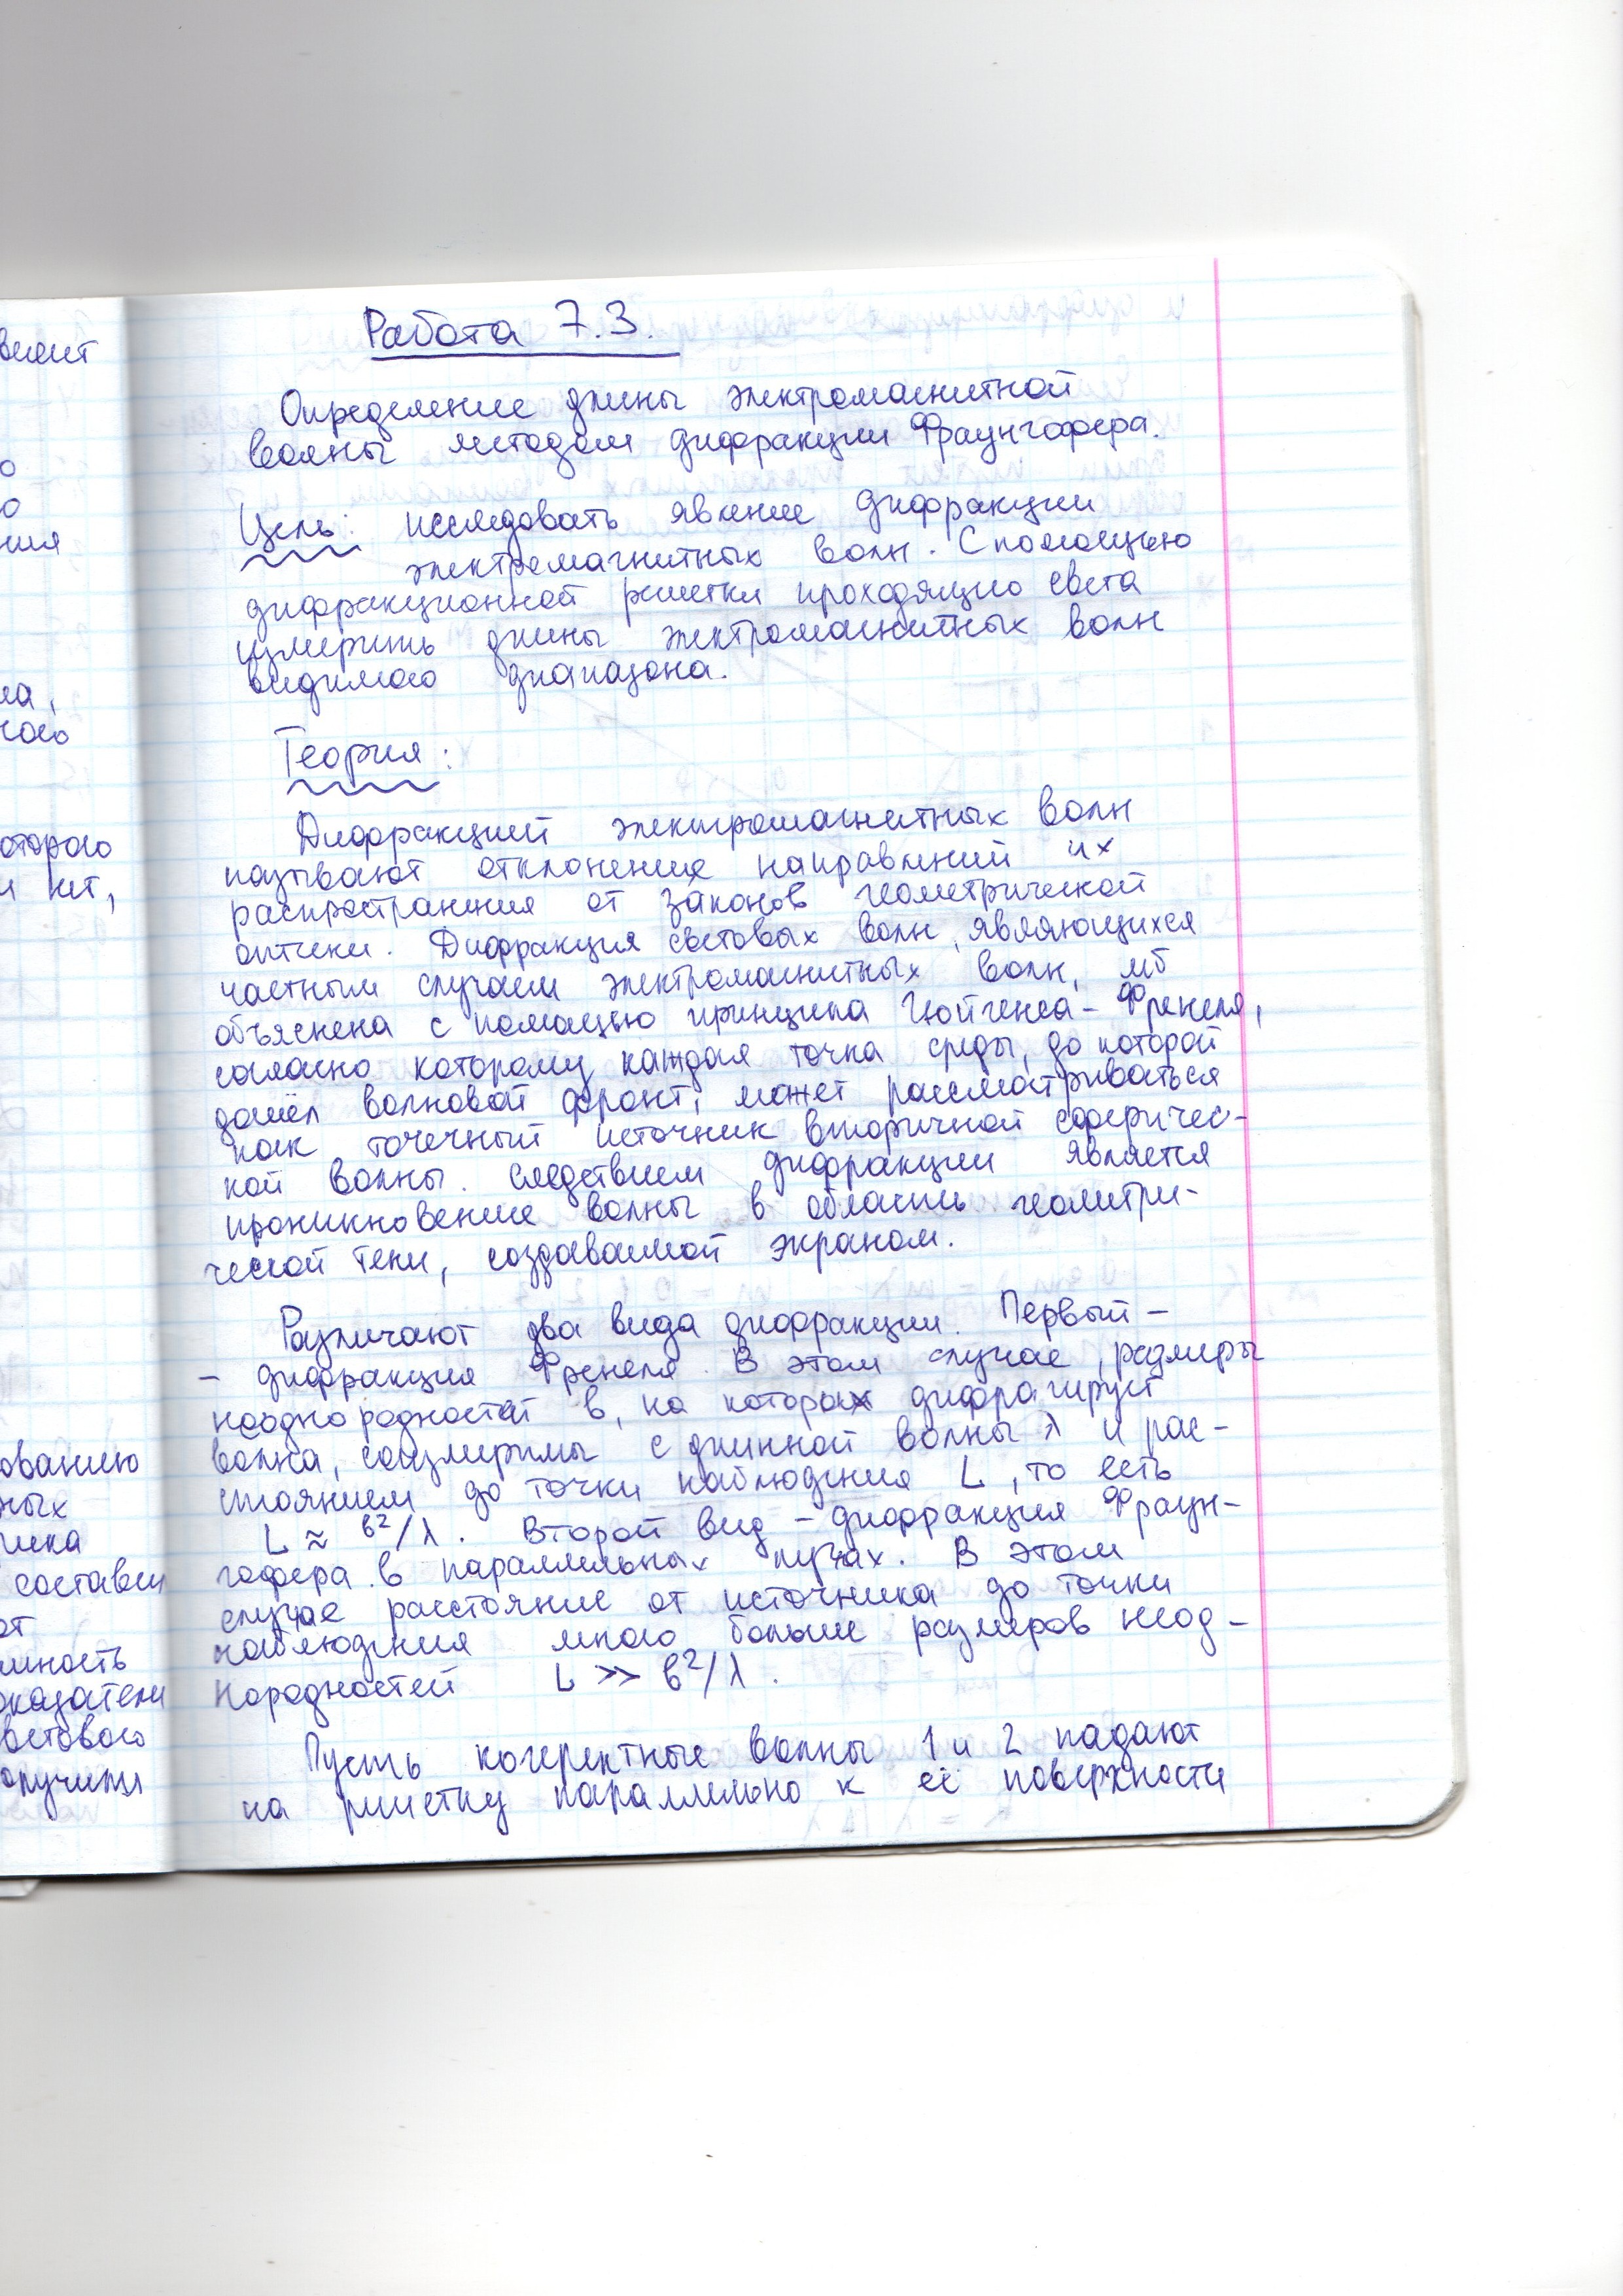 Работа 7.3.
Определение длины электромагнитной
волны методом дифракции Фраунгофера.
Цель: исследовать явление дифракции
электремагнитных волн. С помощью
дифракционной решетки проходящего света
измерить длины электромагнитных волн
видимого диапазона.
Теория:
Дифракцией электромагнитных волн
называют отклонение направлений их
распространения от законов геометрической
оптики. Дифракция световых волн, являющихся
частным случаем электромагнитных волн, мб
объяснена с помощью принципа Гюйгенса-Френеля,
согласно которому каждая точка среды, до которой
дошёл волновой фронт, может рассматриваться
как точечный источник вторичной сферичес-
кой волны. Следствием дифракции является
проникновение волны в область геометри-
ческой тени, создаваемой экраном.
Различают два вида дифракции. Первый –
– дифракция Френеля. В этом случае, размеры
неоднородностей в, на которых дифрагирует
волна, соизмеримы с длинной волны λ и рас-
стоянием до точки наблюдения L, то есть
L ≈ в²/λ. Второй вид – дифракция Фраун-
гофера в параллельных лучах. В этом
случае расстояние от источника до точки
наблюдения много больше размеров неод-
нородностей L >> в²/λ.
Пусть когерентные волны 1 и 2 падают
на решетку параллельно к её поверхности
вает
о
о
ния
ла,
ного
оторого
и нет,
ованию
ных
ника
составл
от
мность
оказателя
ветового
олучить